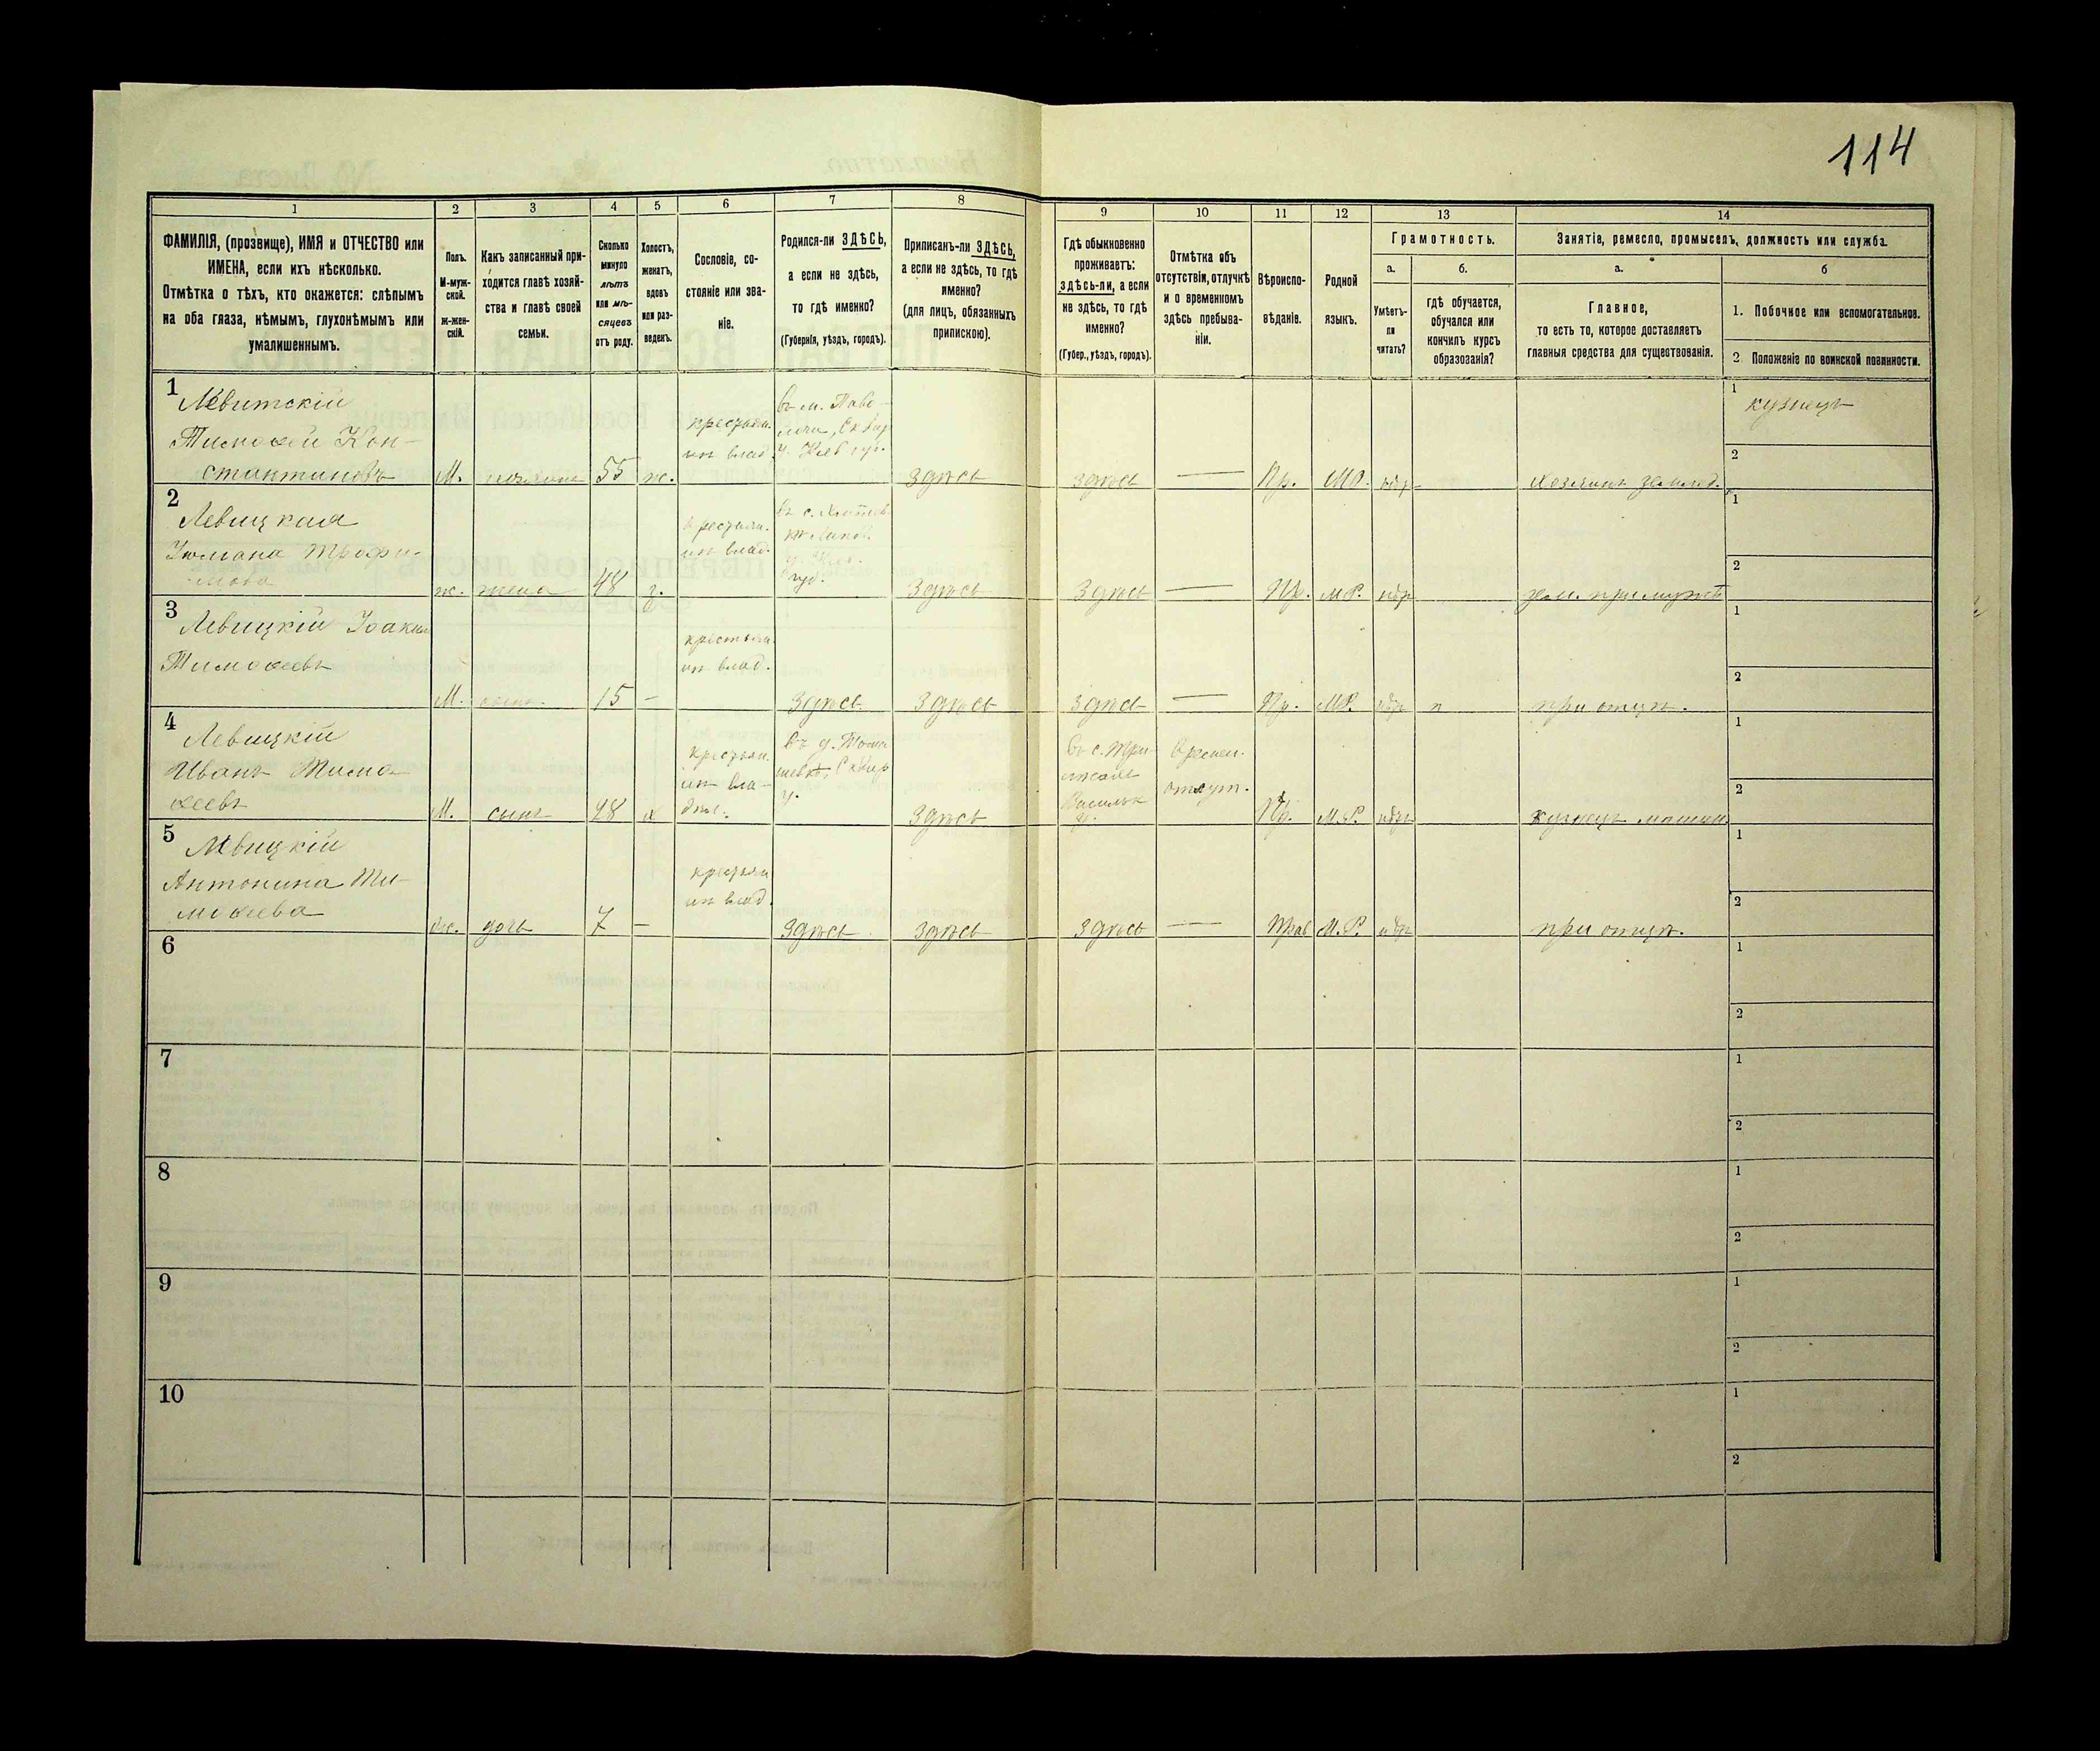 114
1
2
3
4
5
6
7
8
9
10
11
12
13
14
ФАМИЛІЯ, (прозвище), ИМЯ и ОТЧЕСТВО или
ИМЕНА, если ихъ нѣсколько.
Отмѣтка о тѣхъ, кто окажется: слѣпымъ
на оба глаза, нѣмымъ, глухонѣмымъ или
умалишеннымъ.
Полъ.
М-муж-
ской.
ж-жен-
скій.
Какъ записанный при-
ходится главѣ хозяй-
ства и главѣ своей
семьи.
Сколько
минуло
лѣтъ
или мѣ-
сяцевъ
отъ роду.
Холостъ,
женатъ,
вдовъ
или раз-
веденъ.
Сословіе, со-
стояніе или зва-
ніе.
Родился-ли ЗДѢСЬ,
а если не здѣсь,
то гдѣ именно?
(Губернія, уѣздъ, городъ).
Приписанъ-ли ЗДѢСЬ,
а если не здѣсь, то гдѣ
именно?
(для лицъ, обязанныхъ
припискою).
Гдѣ обыкновенно
проживаетъ:
здѣсь-ли, а если
не здѣсь, то гдѣ
именно?
(Губер., уѣздъ, городъ).
Отмѣтка объ
отсутствіи, отлучкѣ
и о временномъ
здѣсь пребыва-
ніи.
Вѣроиспо-
вѣданіе.
Родной
языкъ.
Грамотность.
а.
Умѣетъ-
ли
читать?
б.
гдѣ обучается,
обучался или
кончилъ курсъ
образованія?
Занятіе, ремесло, промыселъ, должность или служба.
а.
Главное,
то есть то, которое доставляетъ
главныя средства для существованія.
б
1. Побочное или вспомогательное.
2. Положеніе по воинской повинности.
1
Левитскій
Тимофей Кон-
стантиновъ
М.
хозяинъ
55
ж.
крестьян.
из влад.
въ м. Паво-
лочи, Сквир.
у. Киев. губ.
здѣсь
здѣсь
—
Пр.
МР.
хозяинъ землед.
1
кузнецъ
2
2
Левицкая
Трофи-
мова
ж.
жена
48
з.
крестьян.
из влад.
губ.
здѣсь
здѣсь
—
Пр.
М.Р.
зем. при мужѣ
1
2
3
Левицкій Іоаким
Тимофеевъ
М.
сынъ
15
—
крестьян.
из влад.
здѣсь
здѣсь
здѣсь
—
Пр.
МР.
при отцѣ.
1
2
4
Левицкій
Иванъ Тимо
феевъ
М.
сынъ
28
х
крестьян.
из вла-
въ д. Тома
шевкѣ, Сквир
у.
здѣсь
Васильк
у.
времен.
отсут.
Пр.
М.Р.
кузнецъ
1
2
5
Левицкій
Антонина Ти-
мофеева
ж.
дочь
7
—
крестьян
из влад.
здѣсь
здѣсь
здѣсь
—
Прав
М.Р.
при отцѣ.
1
2
6
1
2
7
1
2
8
1
2
9
1
2
10
1
2